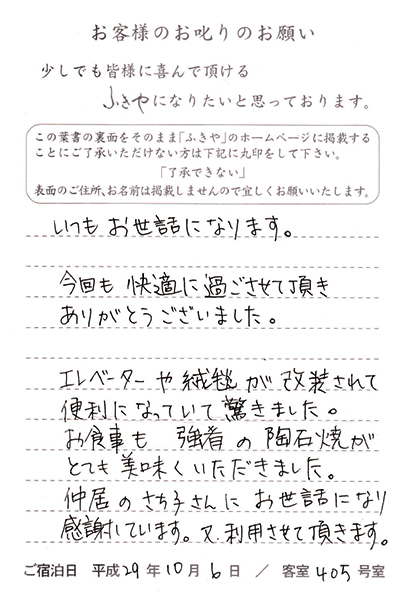 お客様のお叱りのお願い
少しでも皆様に喜んで頂ける
ふきやになりたいと思っております。
この葉書の裏面をそのまま「ふきや」のホームページに掲載する
ことにご了承いただけない方は下記に丸印をして下さい。
「了承できない」
表面のご住所、お名前は掲載しませんので宜しくお願いいたします。
いつもお世話になります。
今回も快適に過ごさせて頂き
ありがとうございました。
エレベーターや絨毯が改装されて
便利になっていて驚きました。
お食事も 強肴の陶石焼が
とても美味くいただきました。
仲居のさち子さんにお世話になり
感謝しています。又利用させて頂きます。
ご宿泊日 平成29年10月6日 / 客室405号室